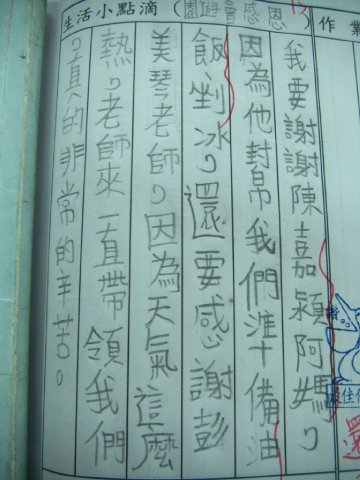 生活小點滴（園遊會感恩）
作業
我要謝謝陳嘉潁阿媽，
因為他封帛我們準備油
飯、剉冰，還要感謝彭
美琴老師，因為天氣這麼
熱，老師來一直帶領我們
，真的非常的辛苦。